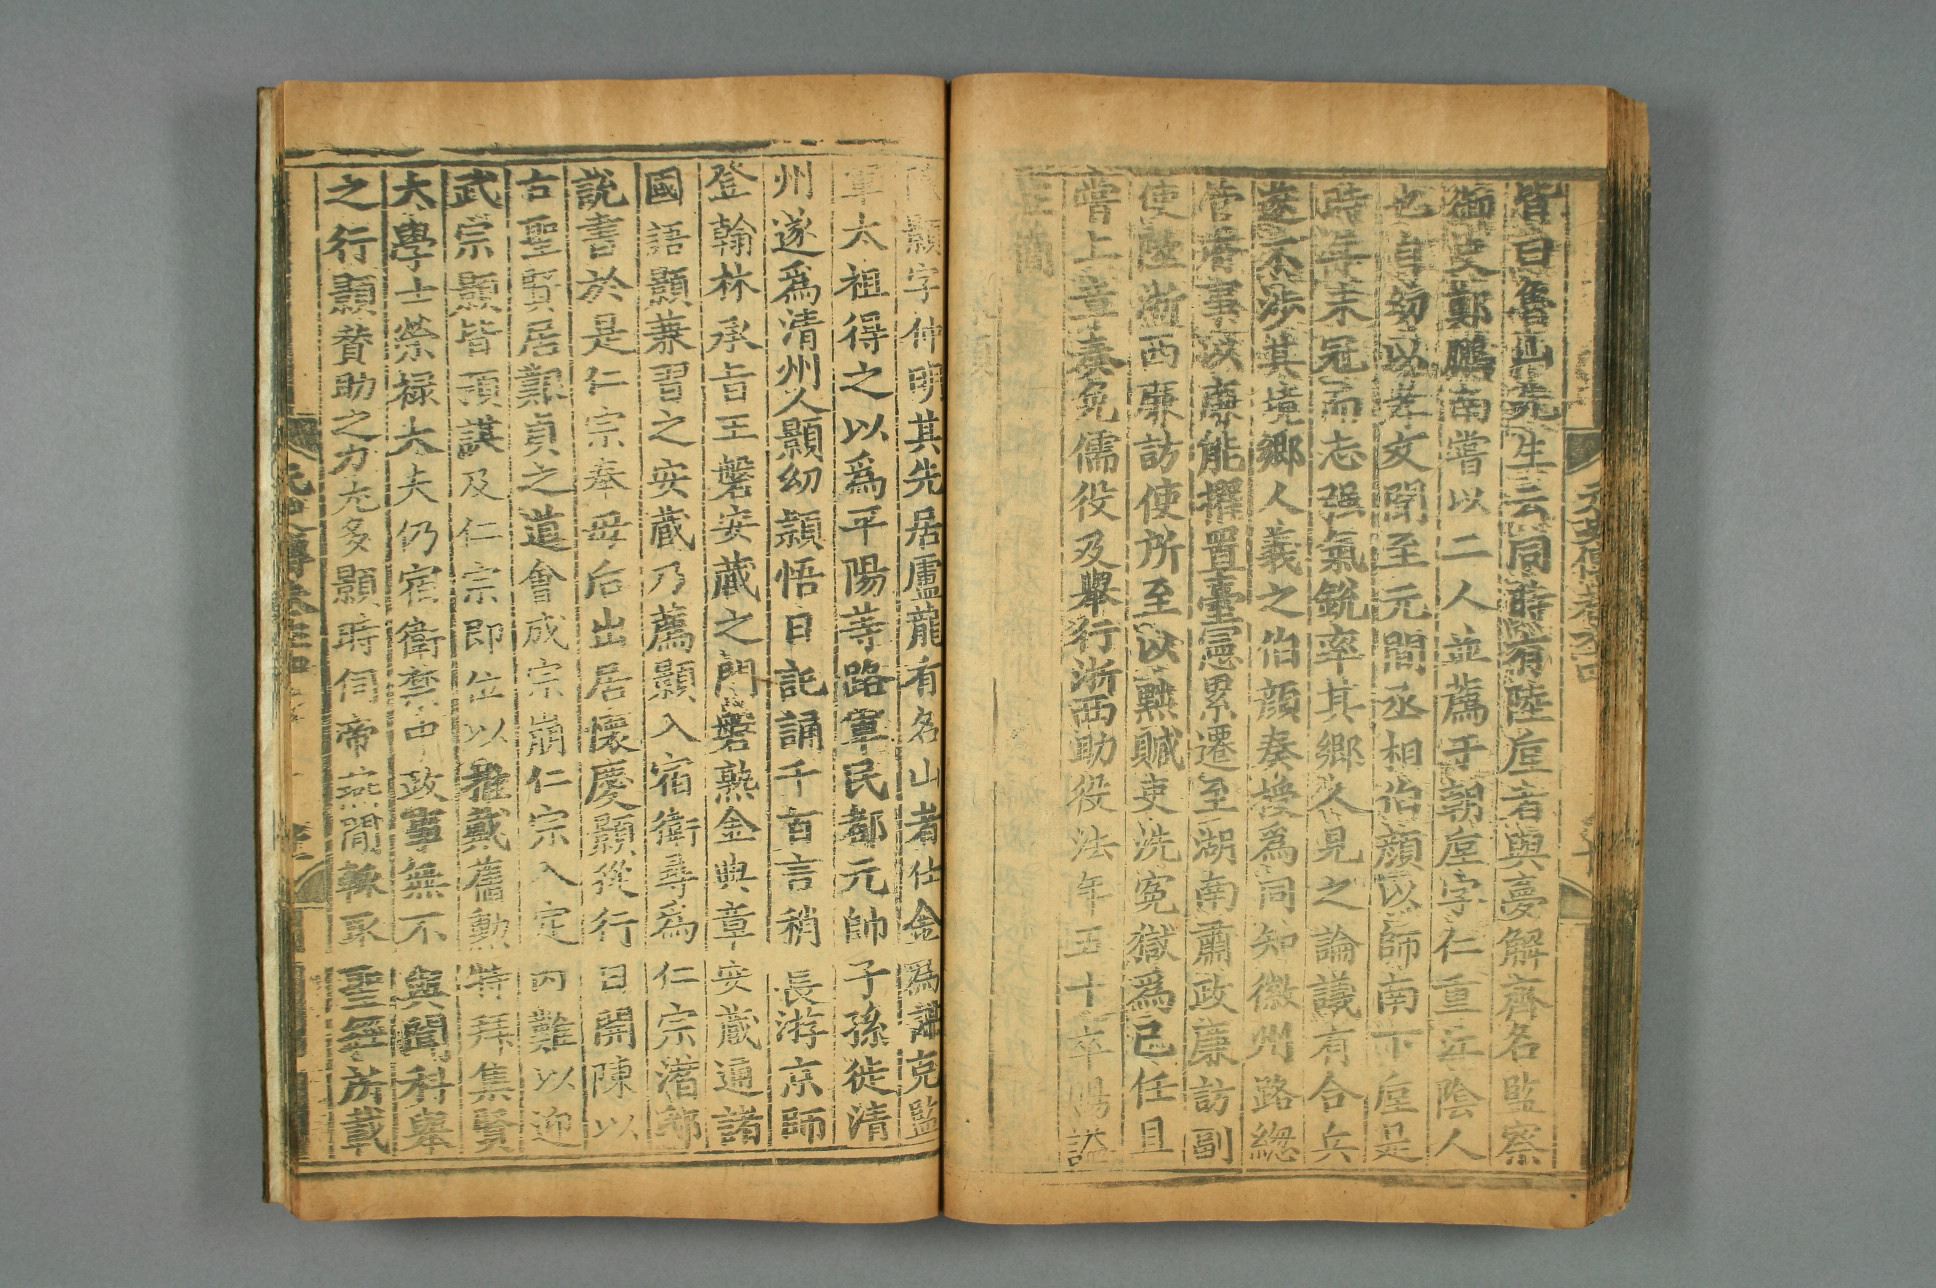 元史傳卷六十四
皆白魯山先生云同時有陸垕者與夢解齊名監察
御史鄭鵬南嘗以二人並薦于朝垕字仁重江陰人
也自幼以孝文聞至元間丞相伯顔以師南下垕是
時年未冠而志强氣銳率其鄉人見之論議有合兵
遂不涉其境鄉人義之伯顔奏授爲同知徽州路總
管府事以廉能擢置臺憲累遷至湖南肅政廉訪副
使陞浙西廉訪使所至以黜贓吏洗冤獄爲己任且
嘗上章奏免儒役及舉行浙西助役法年五十卒賜謚
顥字仲明其先居盧龍有名山者仕金爲謀克監
軍太祖得之以爲平陽等路軍民都元帥子孫徙清
州遂爲清州人顥幼穎悟日記誦千百言稍長游京師
登翰林承旨王磐安藏之門磐熟金典章安藏通諸
國語顥兼習之安藏乃薦顥入宿衛尋爲仁宗潛邸
說書於是仁宗奉母后出居懷慶顥從行日開陳以
古聖賢居艱貞之道會成宗崩仁宗入定内難以迎
武宗顥皆預謀及仁宗即位以推戴舊勳特拜集賢
大學士榮祿大夫仍宿衛禁中政事無不與聞科舉
之行顥贊助之力尤多顥時伺帝燕閒輒取聖經所載
元史傳卷六十四